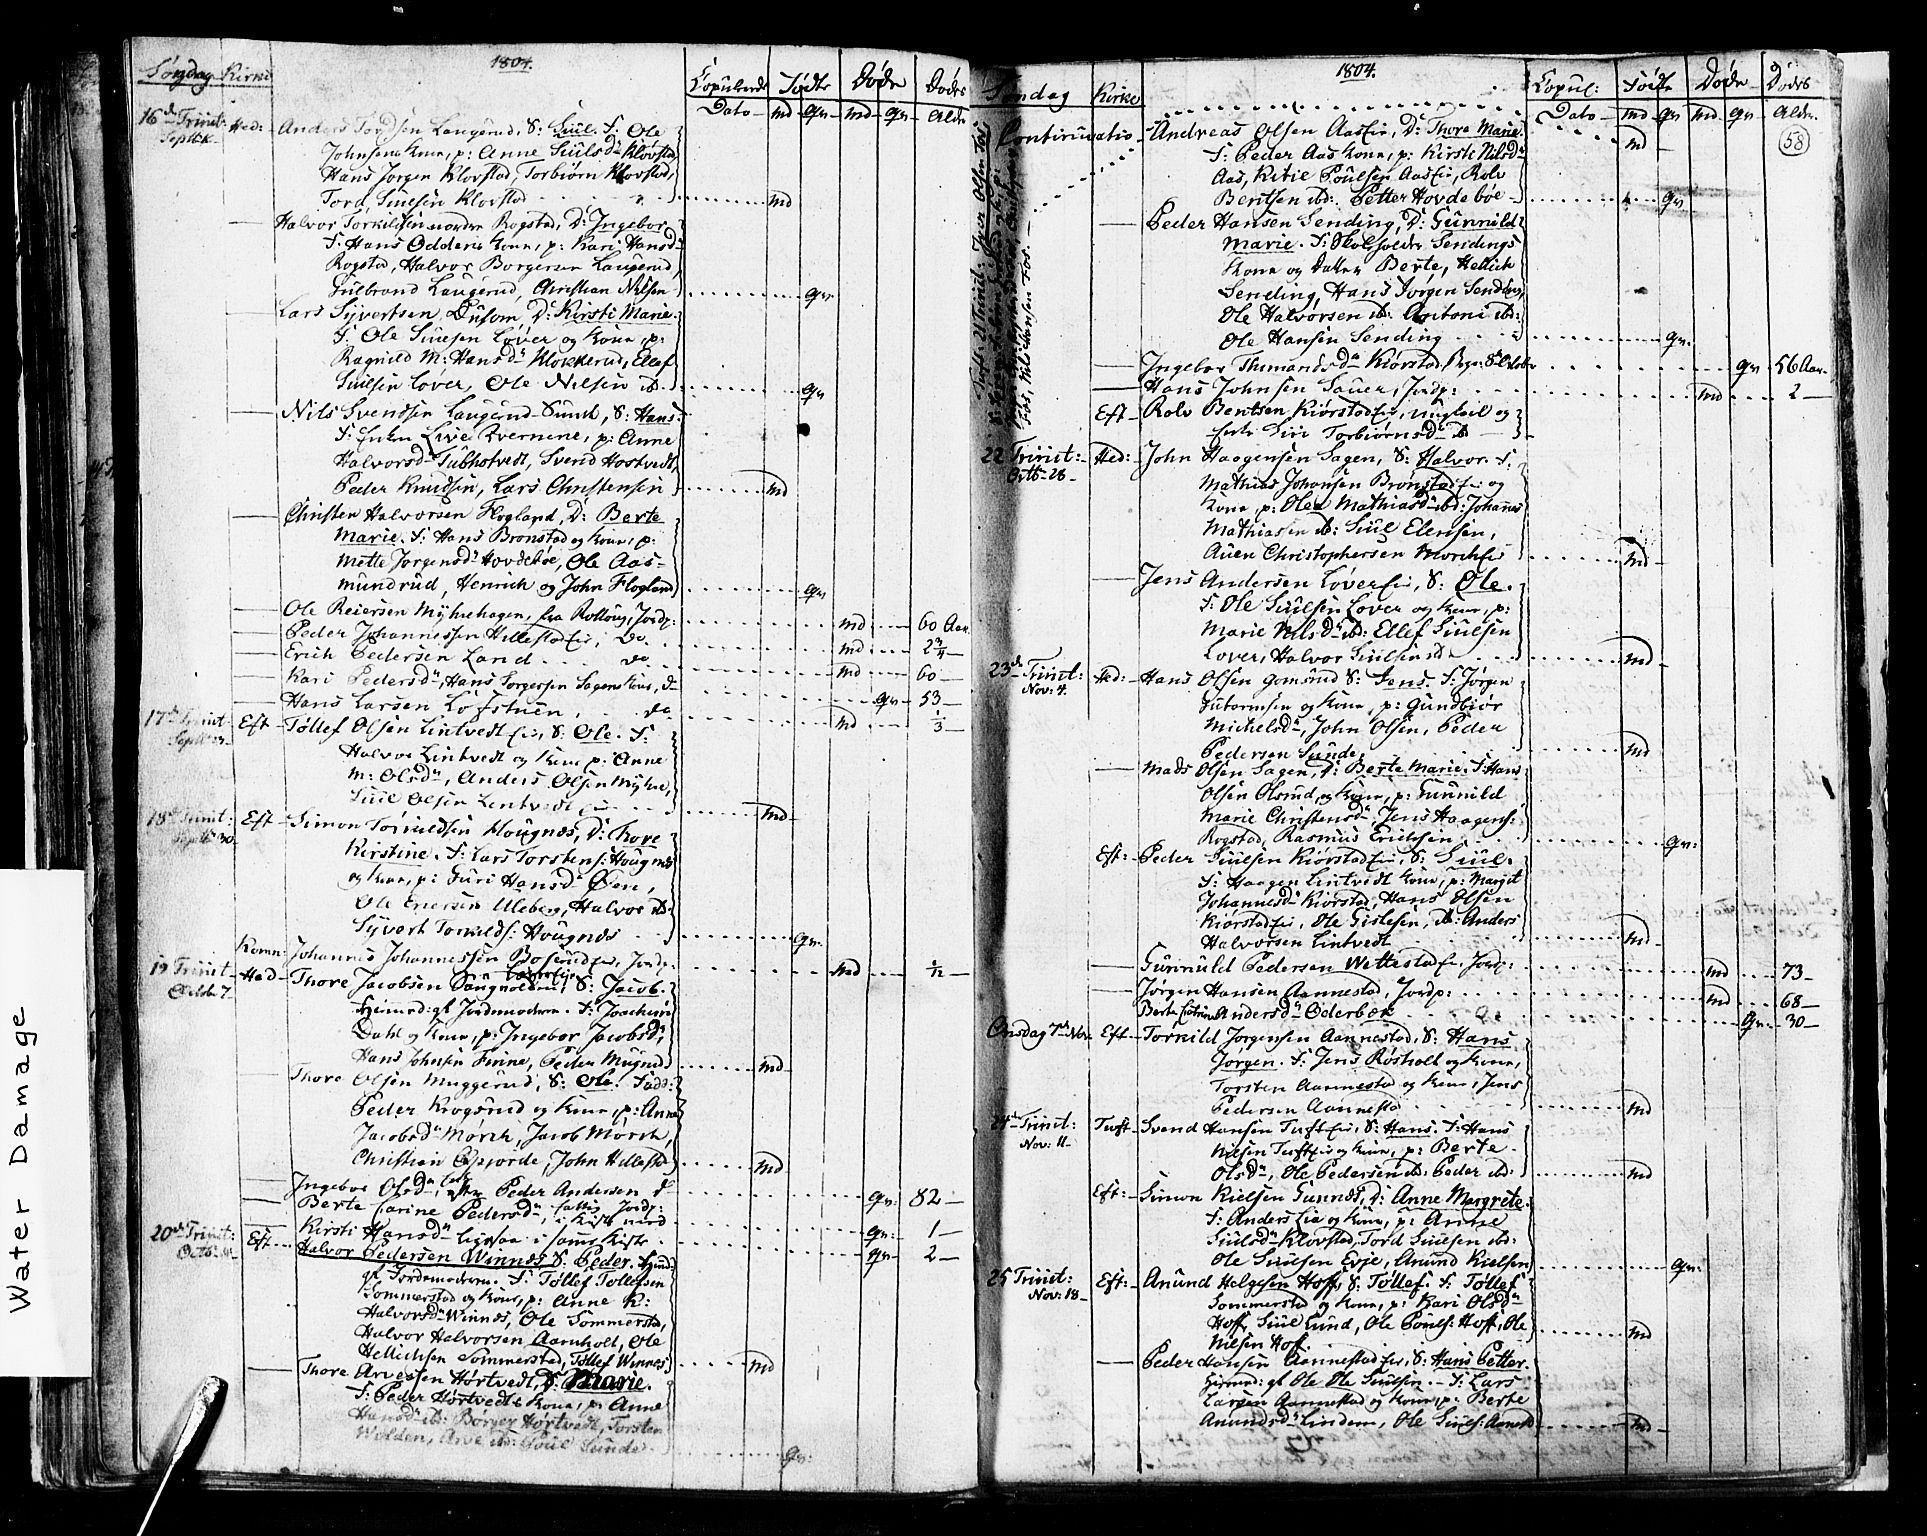 Water Damage
Søndag Kirke 1804. Copulerede Født Døde Dødes
Dato md qv md qv Alder
16de Trinit: Septb: Hed: Anders Tordsen Laugerud, S: Siul. F: Ole
Johnsens Kone, p: Anne Siulsd Klovstad
Hans Jørgen Klovstad, Torbiørn Klovstad,
Tord Siulsen Klovstad md
Halvor Torkildsen nordre Rogstad, D: Ingebor
F: Hans Odderis Kone, p: Kari Hansd
Rogstad, Halvor Borgersen Laugerud,
Gulbrand Laugerud, Christian Nilsen qv
Lars Syvertsen D: Kirsti Marie.
F: Ole Siulsen Løver og Kone, p:
Ragnild M: Hansd Klokkerud, Ellef
Siulsen Løver, Ole Nilsen ib. qv
Nils Svendsen Laugerud S: Hans.
F: Live Kvernene, p: Anne
Halvorsd Tubhotvedt, Svend Hostvedt,
Peder Knudsen, Lars Christensen md
Christen Halvorsen Flogland, D: Berte
Marie. F: Hans Bronstad og Kone, p:
Mette Jørgensd Hovdebøe, Ole Aas-
mundrud, Henrich og John Flogland qv
Ole Reiersen Myhrehagen, fra Rollong, Jordp: md 60 Aar
Peder Johannessen Hillestadeie, do md 2 3/4
Erich Pedersen Land do md 60
Kari Pedersd, Hans Jørgensen Sagens Kone, d qv 53
Hans Larsen Løfstuen, do md 1/3
17de Trinit: Septb: 23 Eft Tøllef Olsen Lintvedteie, S: Ole. F:
Halvor Lintvedt og Kone p: Anne
M: Olsd, Anders Olsen Myhre,
Siul Olsen Lintvedt md
18de Trinit: Septb: 30 Eft Simon Torkildsen Hougnæs, D: Thore
Kirstine. F: Lars Torstens: Hougnæs
og Kone, p: Guri Hansd Øen,
Ole Ericsen Uleberg, Halvor ib.
Syvert Torkilds: Hougnæs qv.
Komn: Johannes Johannessen Bøserudeie, Jordp: md 1/12
19 Trinit Octobr 7. Hed Thore Jacobsen S: Jacob.
Hiemd: af Jordemoderen. F: Joachim
Dahl og Kone, p: Ingebor Jacobsd,
Hans Johnsen Finne, Peder Mugerud md
Thore Olsen Muggerud, S: Ole. Fadd:
Peder Krogsrud og Kone, p: Anne
Jacobsd Mørch, Jacob Mørch,
Christian Opjorde, John Hillestad md
Ingebor Olsd, Peder Andersen qv 82
Berte Carine Pedersd, Jordp:
i Kiste med qv 1
Kirsti Hansd ligesaa i samme Kiste qv 2
20de Trinit: Octb: 14 Eft Halvor Pedersen Winnes S: Peder. Hiemd:
af Jordemoderen. F: Tøllef Tollefsen
Sommerstad og Kone, p: Anne K:
Halvorsd Winnes, Ole Sommerstad,
Halvor Halvorsen Aarnholt, Ole
Hellichsen Sommerstad, Tøllef Winnes md
Thore Arvesen Hørtvedt, D: Marie.
F: Peder Hørtvedts Kone, p: Anne
Hansd ib: Børger Hørtvedt, Torsten
Wolden, Arve ib: Siul Sundes. qv.
Søndag Kirke 1804. Copul: Fødte Døde Dødes
Dato md qv md qv Alder
58
Continuatio Andreas Olsen Aaseie, D: Thore Marie.
F: Peder Aas Kone, p: Kirsti Nilsd
Aas, Kitie Poulsen Aaseie, Rolv
Bentsen ibd: Petter Hovdebøe qv
Peder Hansen Sending, D: Gunnild
Marie. F: Skolholder Sendings
Kone og Datter Berte, Hellich
Sending, Hans Jørgen Sending,
Ole Halvorsen ib: Antoni ibd:
Ole Hansen Sending qv.
Ingebor Thimandsd Kiørstad qv 56 Aar
Hans Johnsen Sauer, Jordp: md 2
Eft Rolv Bentsen Kiørstadeie, ungkarl og
Siri Torbiørnsd ib
22 Trinit: Octb: 28 Hed: John Haagensen Sagen, S: Halvor. F:
Mathias Johansen Bronstadeie og
Kone, p: Olea Mathiasd ibd: Johannes
Mathiasen ib: Siul Elensen,
Auen Christophersen Morcheie md
Jens Andersen Løvereie, S: Ole.
F: Ole Siulsen Løver og Kone, p:
Marie Nilsd ib: Ellef Siulsen
Løver, Halvor Siulsen ib md
23de Trinit: Nov: 4. Hed: Hans Olsen Gomsrud S: Jens. F: Jørgen
Gutormsen og Kone, p: Gundbiør
Michelsd, John Olsen, Peder
Pedersen Sunde. md
Mads Olsen Sagen, D: Berte Marie. F: Hans
Olsen Olsrud, og Kone, p: Gunnild
Marie Christensd, Jens Haagens:
Rogstad, Rasmus Erichsen qv:
Eft: Peder Siulsen Kiørstadeie, S: Siul.
F: Haagen Lintvedt Kone, p: Margit
Johannesd Kiørstad, Hans Olsen
Kiørstadeie, Ole Gislesen, ib: Anders
Halvorsen Lintvedt md
Gunnuld Pedersen Wettestadeie, Jordp: md 73
Jørgen Hansen Aannestad, Jordp: md 68
Berte Andersd Oderbek qv 30
Onsdag 7de Nov Eft Torkild Jørgensen Aannestad, S: Hans
Jørgen. F: Jens Røsholt og Kone,
Torsten Aannestad og Kone, Jens
Pedersen Aannestad md
24de Trinit: Nov: 11 Tuft Svend Hansen Tufteie, S: Hans. F: Hans
Nilsen Tufteie og Kone, p: Berte
Olsd, Ole Pedersen ib: Peder ib: md
Eft: Simon Kielsen Gunnes, D: Anne Margrete.
F: Anders Lia og Kone, p: Anne
Siulsd Klovstad, Tord Siulsen ib:
Ole Siulsen Evje, Anund Kielsen qv:
25 Trinit: Nov: 18 Eft: Anund Helgesen Hoff, S: Tøllef. F: Tøllef
Sommerstad og Kone, p: Kari Olsd
Hoff, Siul Lund, Ole Pouls: Hoff, Ole
Nilsen Hoff. md
Peder Hansen Aannestadeie, S: Hans Petter.
Hiemd: af Ole Ole Siulsen. F: Lars
Larsen Aannestad og Kone, p: Berte
Anundsd Lindem, Ole Siuls: Aannestd md